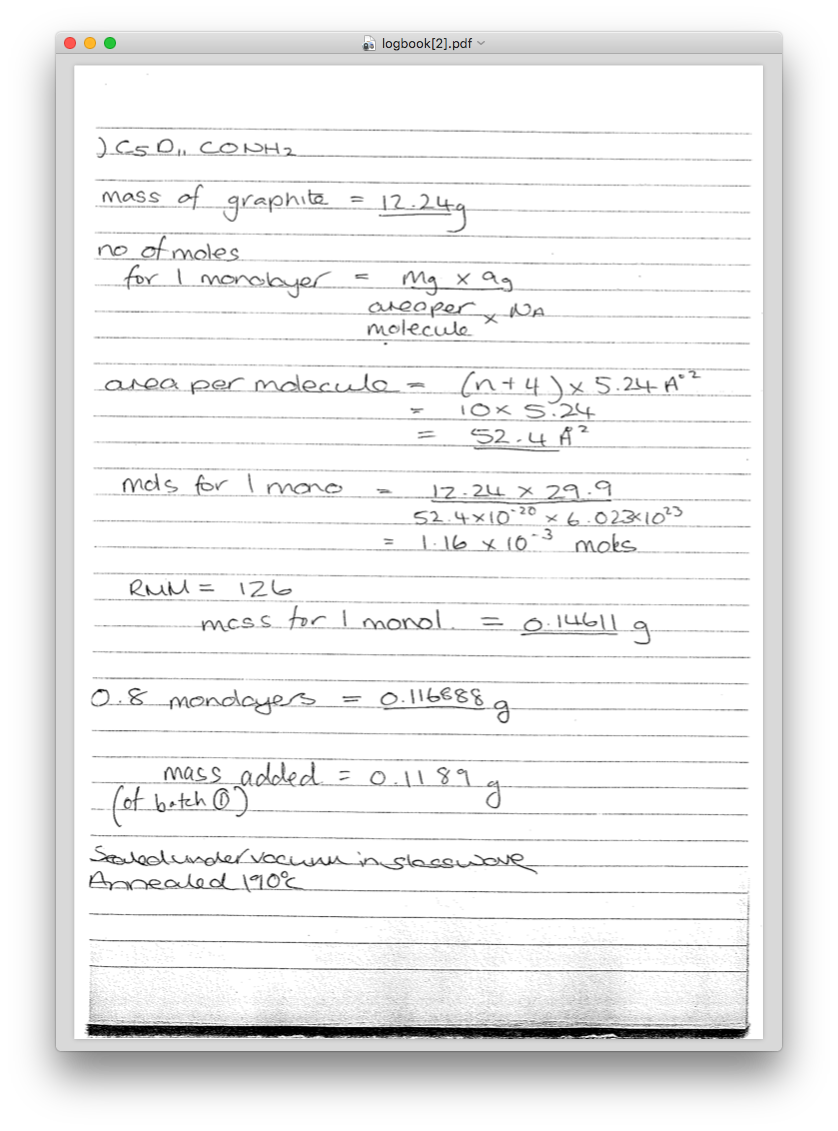 logbook[2].pdf
) C5 D11 CONH2
mass of graphite = 12.24g
no of moles
for 1 monolayer = mg × ag
area per × NA
molecule
area per molecule = (n+4) × 5.24 Å²
= 10 × 5.24
= 52.4 Å²
mols for 1 mono = 12.24 × 29.9
52.4×10⁻²⁰ × 6.023×10²³
= 1.16 × 10⁻³ moles
RMM = 126
mass for 1 monol. = 0.14611 g
0.8 monolayers = 0.116888 g
mass added = 0.1189 g
(of batch ①)
Sealed under vacuum in glassware
Annealed 190°c